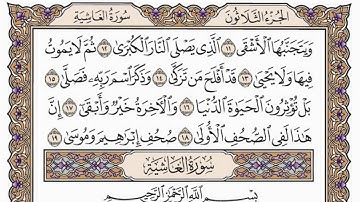 سُورَةُ الغَاشِيَة الجُزْءُ الثَّلَاثُونَ
وَيَتَجَنَّبُهَا ٱلْأَشْقَى ١١ ٱلَّذِى يَصْلَى ٱلنَّارَ ٱلْكُبْرَىٰ ١٢ ثُمَّ لَا يَمُوتُ
فِيهَا وَلَا يَحْيَىٰ ١٣ قَدْ أَفْلَحَ مَن تَزَكَّىٰ ١٤ وَذَكَرَ ٱسْمَ رَبِّهِۦ فَصَلَّىٰ ١٥
بَلْ تُؤْثِرُونَ ٱلْحَيَوٰةَ ٱلدُّنْيَا ١٦ وَٱلْآخِرَةُ خَيْرٌ وَأَبْقَىٰٓ ١٧ إِنَّ
هَٰذَا لَفِى ٱلصُّحُفِ ٱلْأُولَىٰ ١٨ صُحُفِ إِبْرَٰهِيمَ وَمُوسَىٰ ١٩
سُورَةُ الغَاشِيَة
بِسْمِ ٱللَّهِ ٱلرَّحْمَٰنِ ٱلرَّحِيمِ